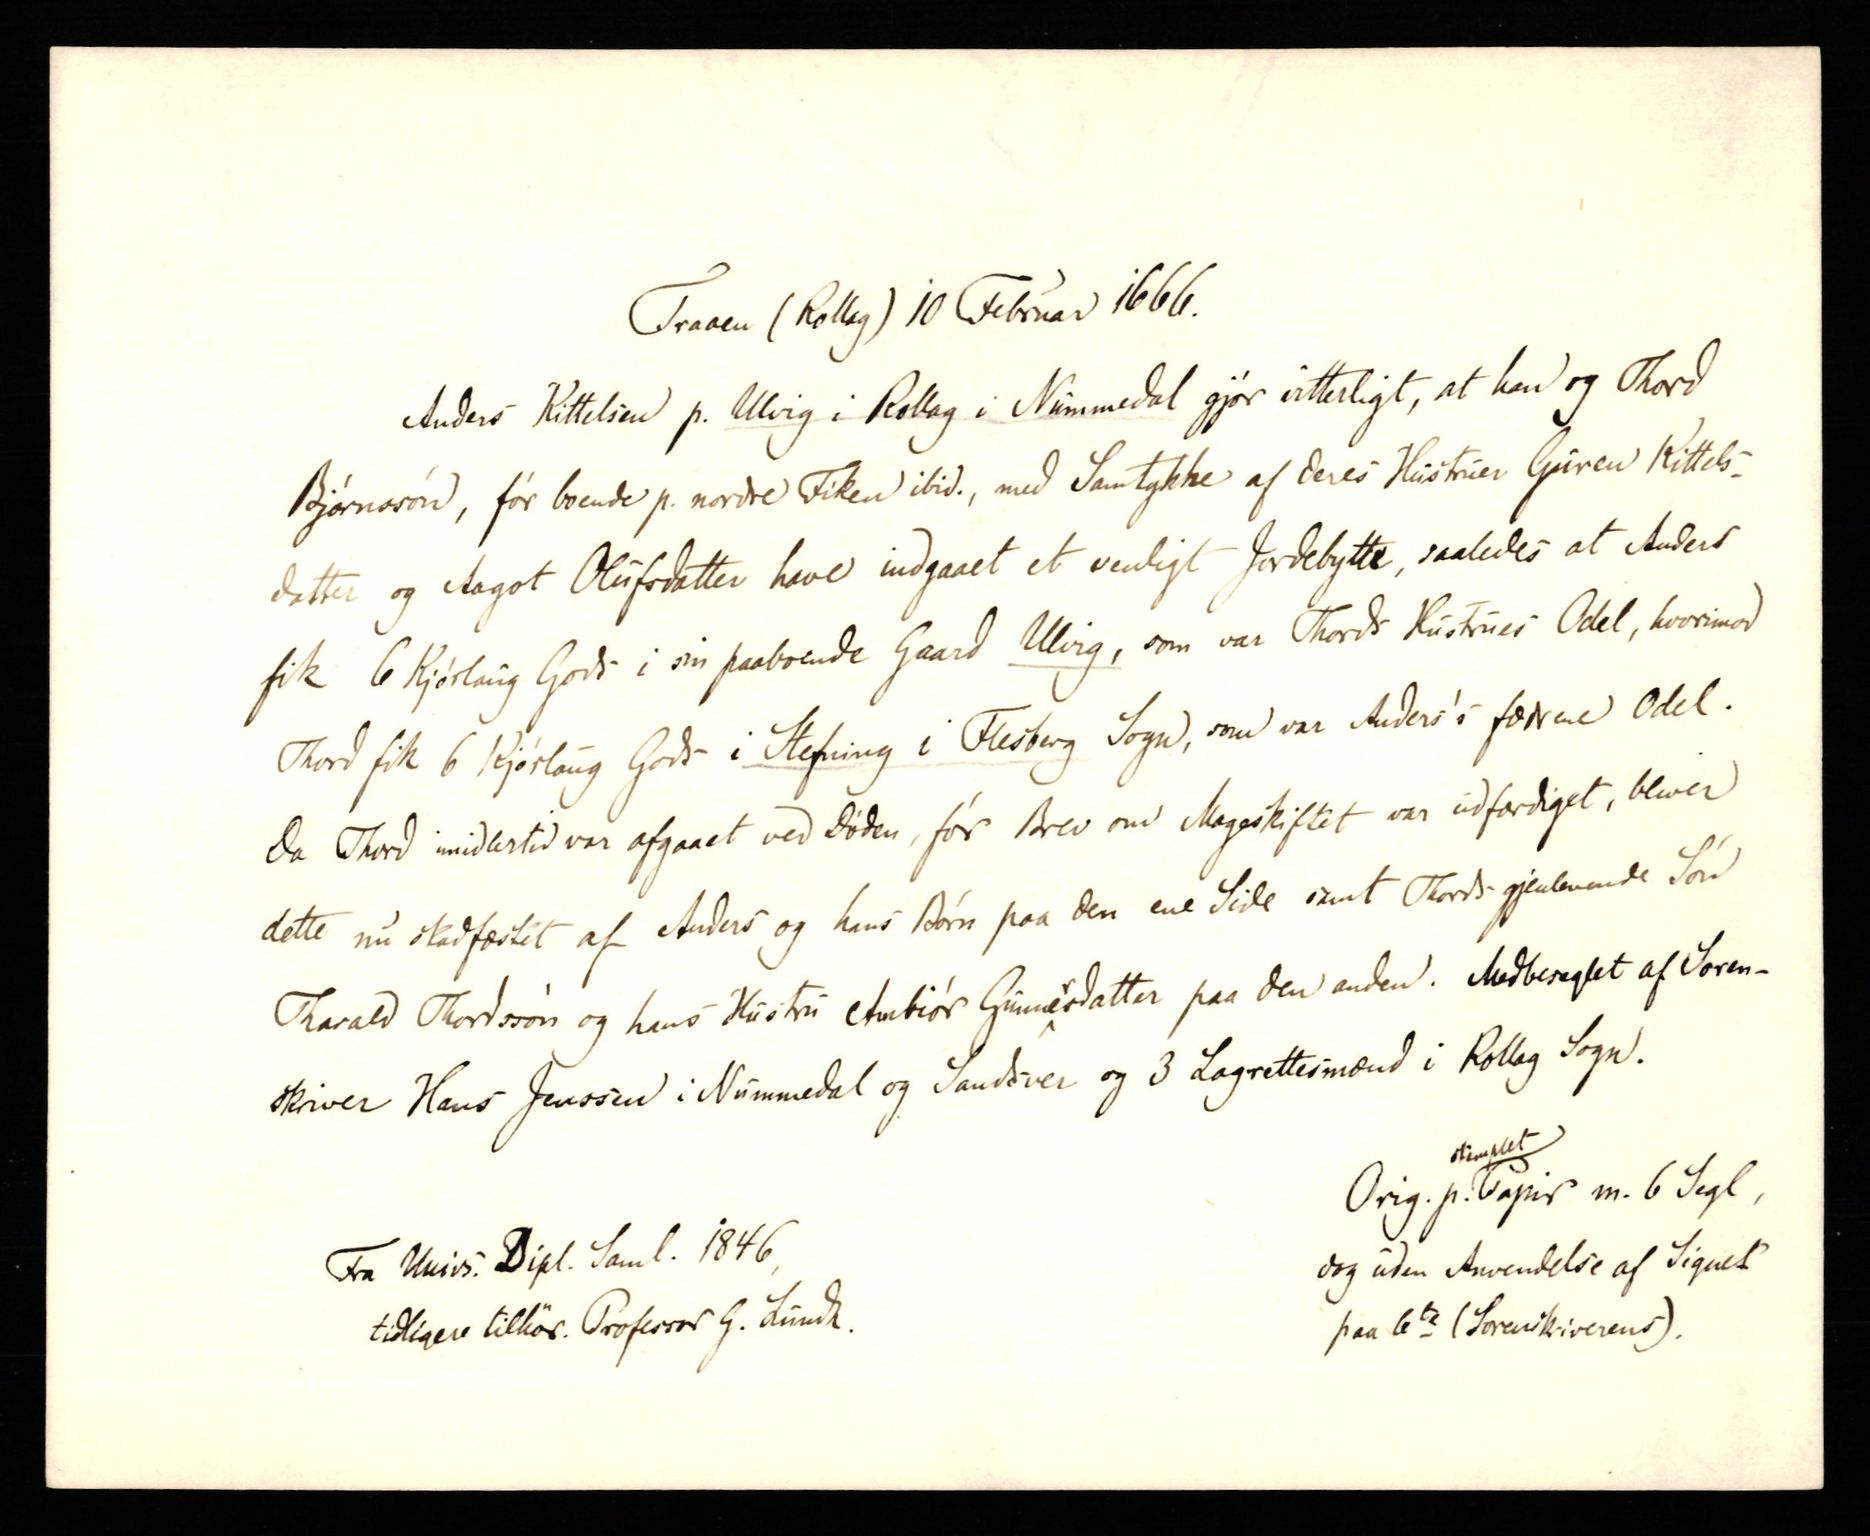 Traaen (Rollag) 10 Februar 1666.
Anders Kittelsen p. Ulvig i Rollag i Nummedal gjör vitterligt, at han og Thord
Björnssön, för boende p. nordre Fiken ibid., med Samtykke af deres Hustruer Guren Kittels-
datter og Aagot Olufsdatter have indgaaet et venligt Jordebytte, saaledes at Anders
fik 6 Kjörlaug Gods i sin paaboende Gaard Ulvig, som var Thords Hustrues Odel, hvorimod
Thord fik 6 Kjörlaug Gods i Stefning i Flesberg Sogn, som var Anders's fædrene Odel.
Da Thord imidlertid var afgaaet ved Döden, för Brev om Mageskiftet var udfærdiget, bliver
dette nu stadfæstet af Anders og hans Börn paa den ene Side samt Thords gjenlevende Sön
Tharald Thordssön og hans Hustru Ambiör Gunnersdatter paa den anden. Medbeseglet af Soren-
skriver Hans Jenssen i Nummedal og Sandsver og 3 Lagrettesmænd i Rollag Sogn.
Orig. p. stemplet Papir m. 6 Segl,
dog uden Anvendelse af Signet
paa 6te (Sorenskriverens).
Fra Univs. Dipl. Saml. 1846,
tidligere tilhör. Professor G. Lundh.